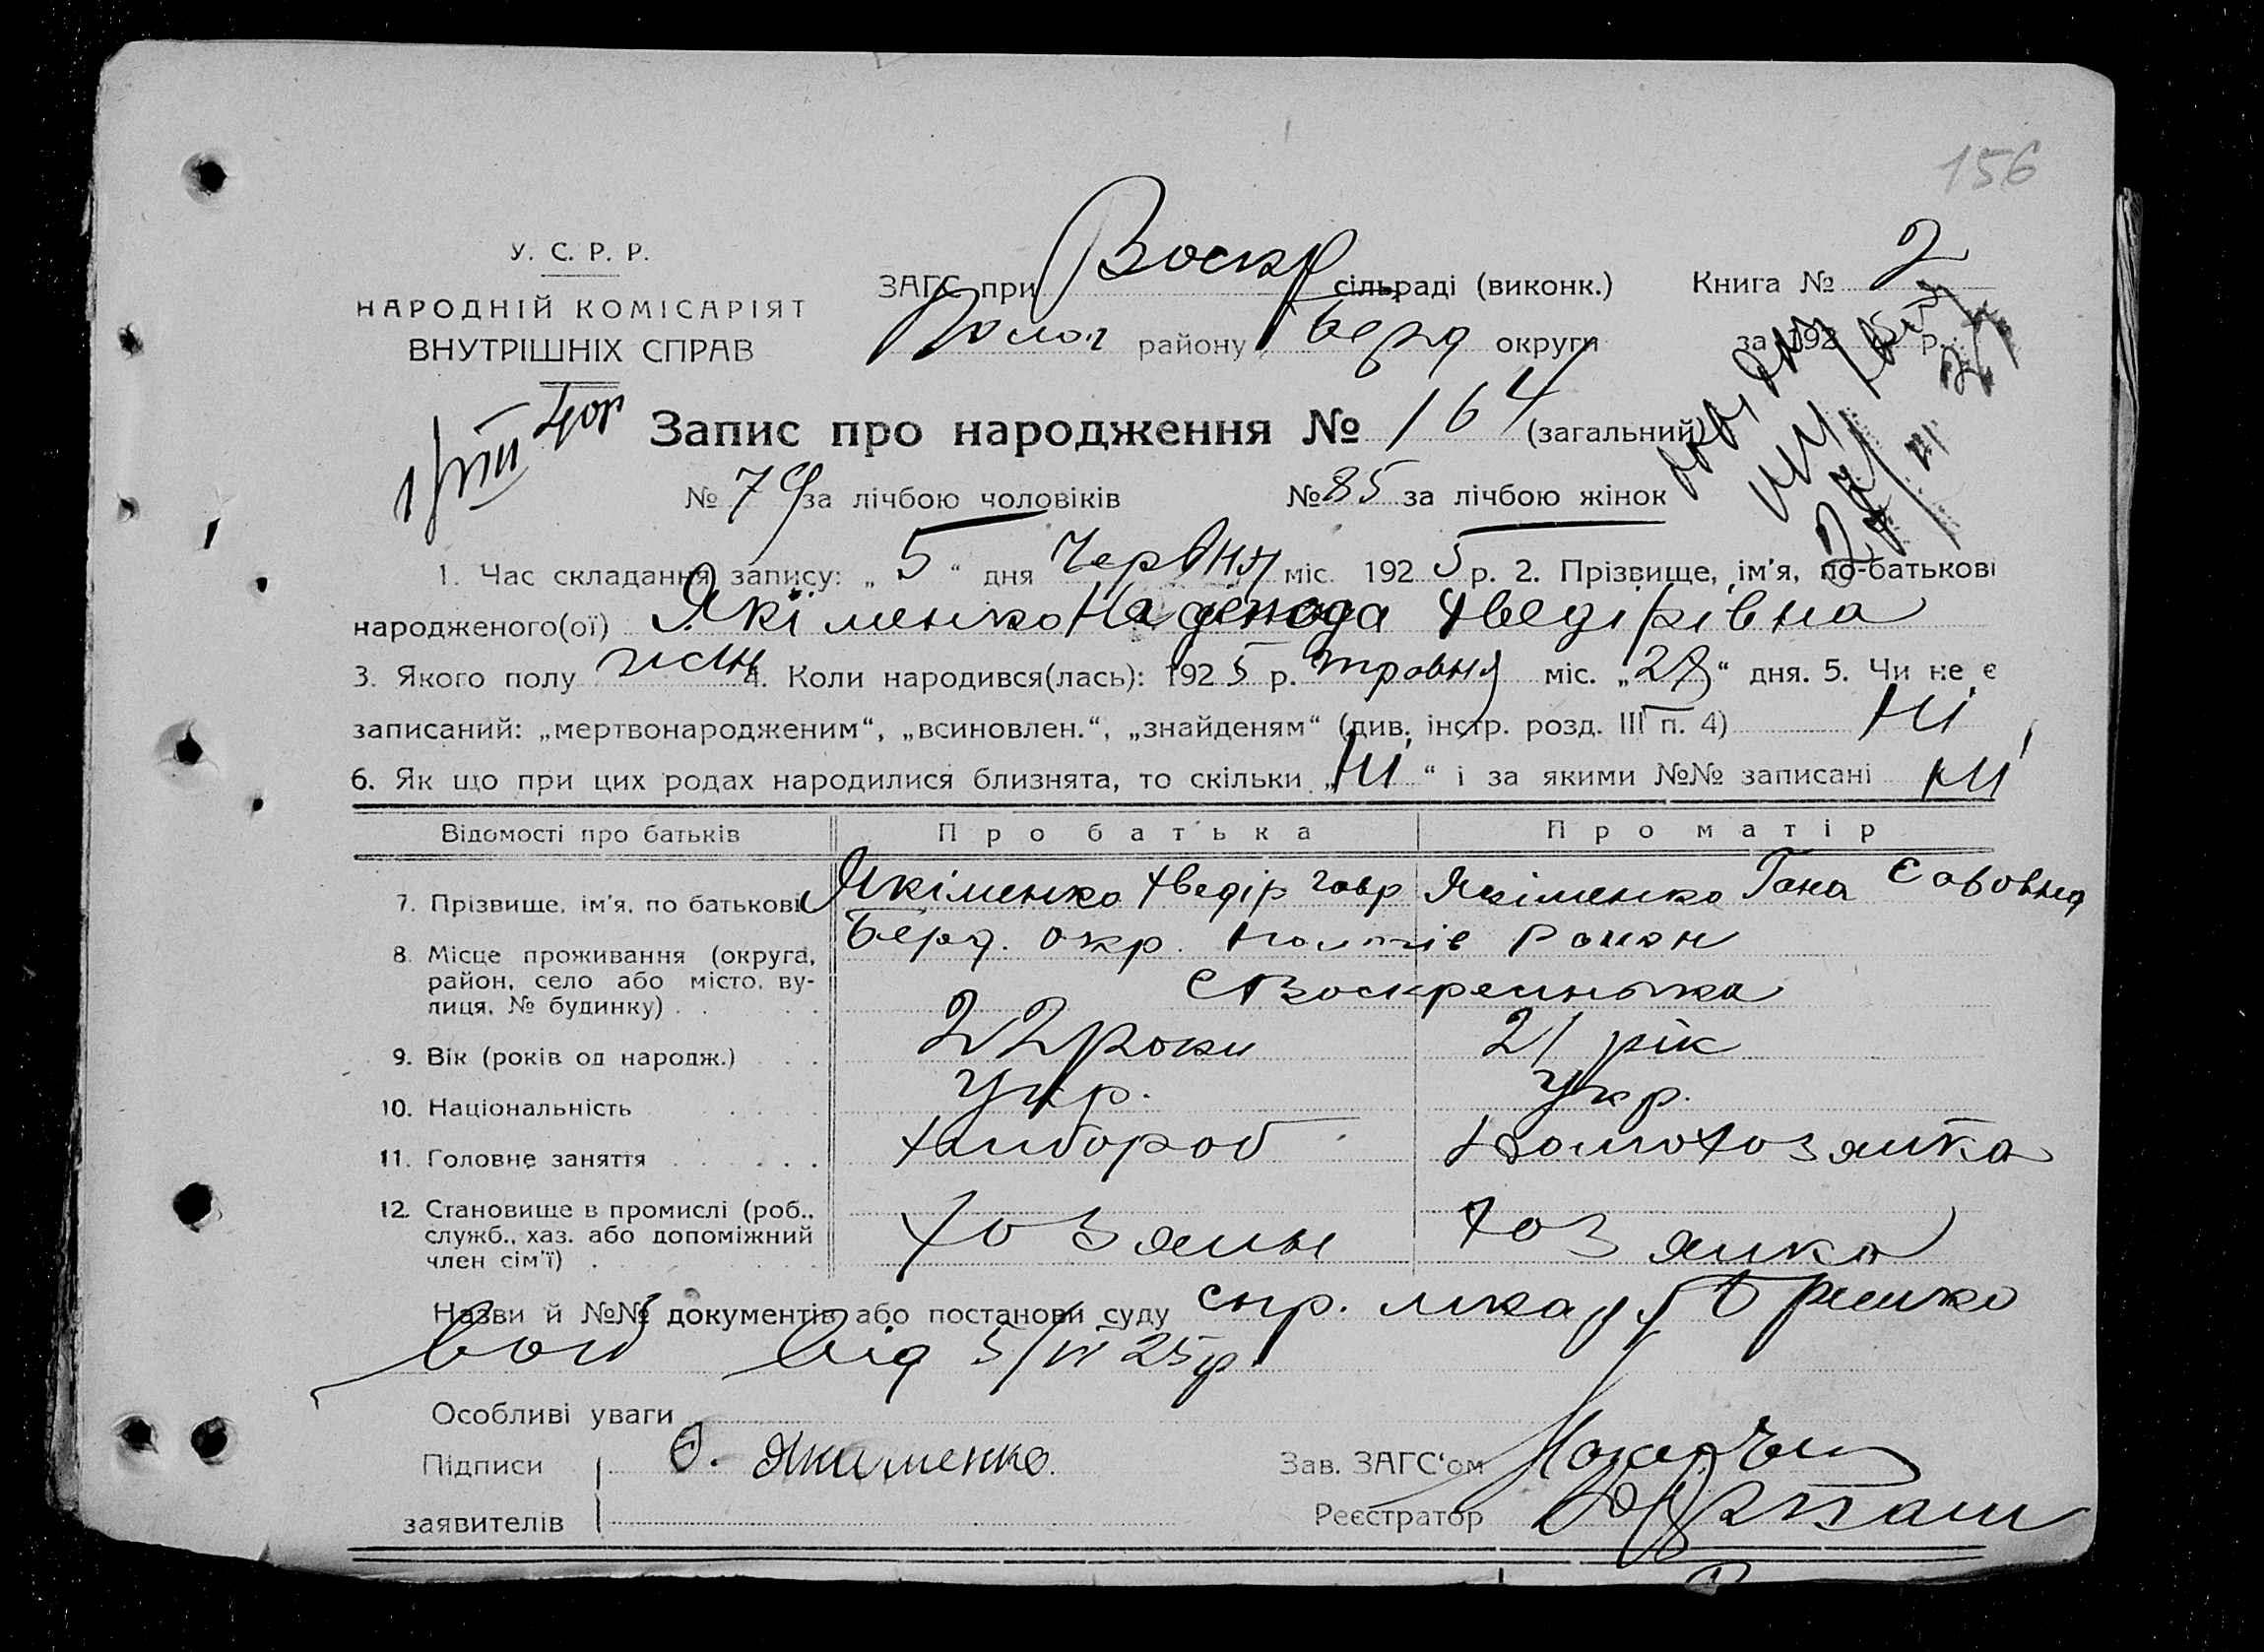 156
У. С. Р. Р.
НАРОДНІЙ КОМІСАРІЯТ
ВНУТРІШНІХ СПРАВ
ЗАГС при Воскр сільраді (виконк.) Книга № 2
Полог району Берд округи за 192 5 р.
Запис про народження № 164 (загальний)
№ 79 за лічбою чоловіків № 85 за лічбою жінок
1. Час складання запису: „ 5 “ дня Червня міс. 192 5 р. 2. Прізвище, ім'я, по-батькові
народженого(ої) Якіменко Хведірівна
3. Якого полу жін 4. Коли народився(лась): 192 5 р. травня міс. „ “ дня. 5. Чи не є
записаний: „мертвонародженим“, „всиновлен.“, „знайденям“ (див. інстр. розд. III п. 4) Ні
6. Як що при цих родах народилися близнята, то скільки „ Ні “ і за якими №№ записані ні
Відомості про батьків Про батька Про матір
7. Прізвище, ім'я, по батькові Якіменко Хведір Гавр Якіменко Гана Савовна
8. Місце проживання (округа, район, село або місто, вулиця, № будинку) Берд. Окр. Район
Воскресенька
9. Вік (років од народж.) 22 роки 21 рік
10. Національність Укр. Укр.
11. Головне заняття Хлибороб Домохозяйка
12. Становище в промислі (роб., служб., хаз. або допоміжний член сім'ї) хозяин хозяика
Назви й №№ документів або постанови суду
від 5/VI 25 р.
Особливі уваги
Підписи Якименко.
заявителів
Зав. ЗАГС‘ом
Реєстратор